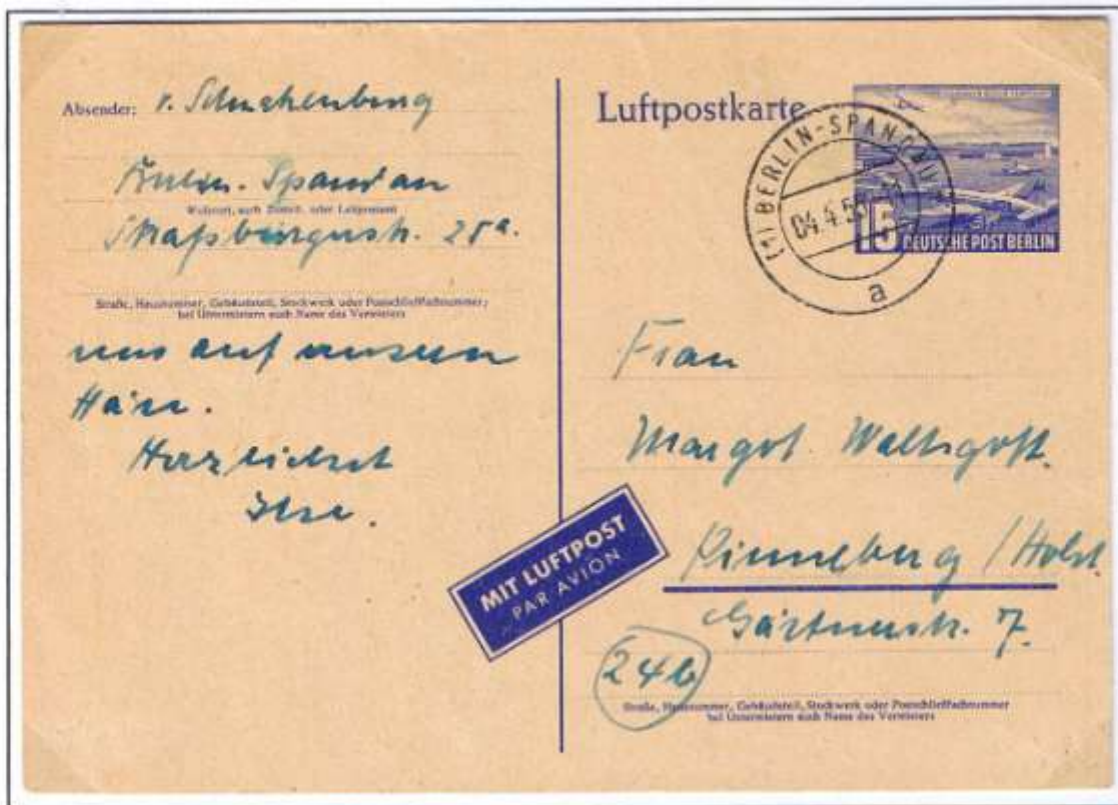 Absender: v. Schuchenberg
Berlin-Spandau
Wohnort, auch Zustell- oder Leitpostamt
Straßburgerstr. 25a.
Straße, Hausnummer, Gebäudeteil, Stockwerk oder Postschließfachnummer;
bei Untermietern auch Name des Vermieters
uns auf unsern
Herzlichst
Ilse.
Luftpostkarte
(1) BERLIN-SPANDAU
04.4.5
a
15 DEUTSCHE POST BERLIN
MIT LUFTPOST
PAR AVION
Frau
Margot
Pinneberg / Holst.
Gärtnerstr. 7.
24b
Straße, Hausnummer, Gebäudeteil, Stockwerk oder Postschließfachnummer
bei Untermietern auch Name des Vermieters